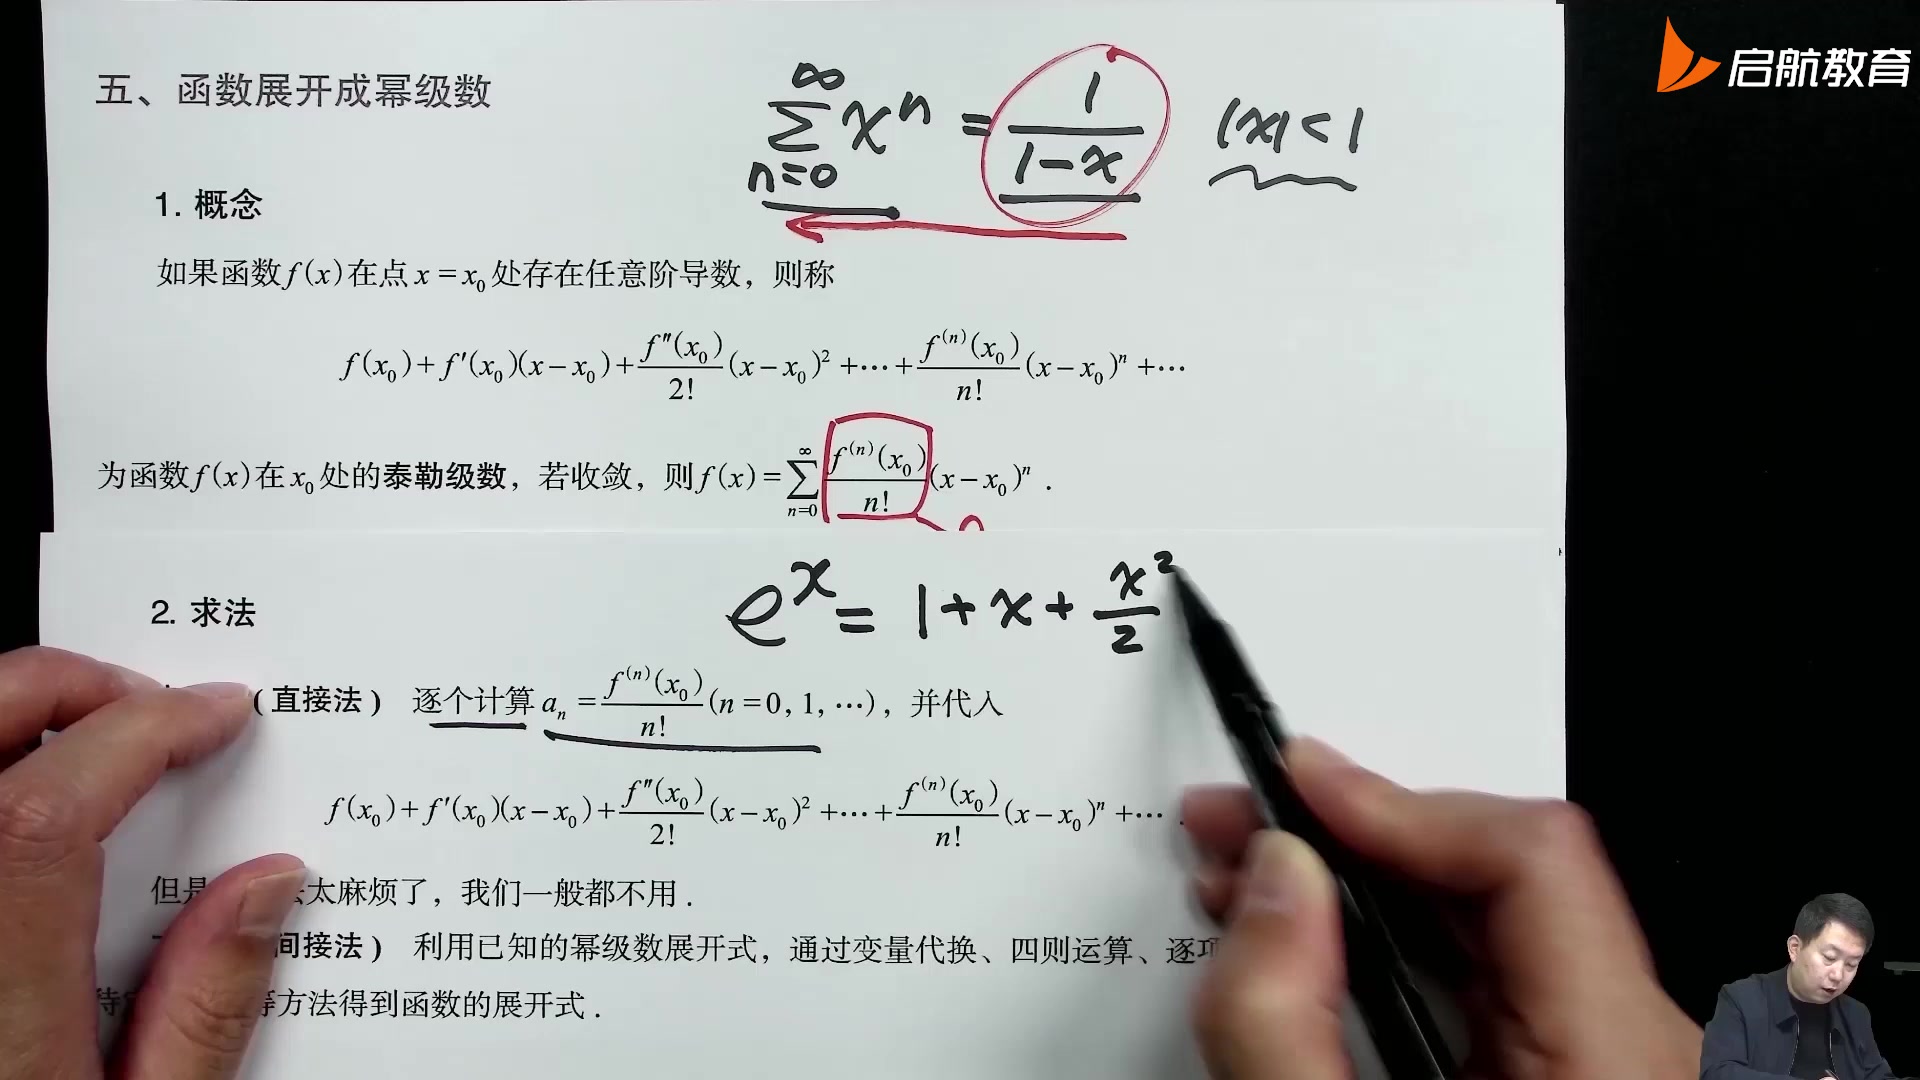 启航教育
五、函数展开成幂级数
∞
∑ xⁿ = 1/(1-x) |x|<1
n=0
1. 概念
如果函数 f(x) 在点 x = x₀ 处存在任意阶导数，则称
f(x₀)+f′(x₀)(x-x₀)+f″(x₀)/2!(x-x₀)²+⋯+f⁽ⁿ⁾(x₀)/n!(x-x₀)ⁿ+⋯
为函数 f(x) 在 x₀ 处的泰勒级数，若收敛，则 f(x)=∑_{n=0}^{∞} f⁽ⁿ⁾(x₀)/n!(x-x₀)ⁿ .
eˣ = 1+x+x²/2
2. 求法
(直接法) 逐个计算 aₙ = f⁽ⁿ⁾(x₀)/n! (n=0, 1, ⋯)，并代入
f(x₀)+f′(x₀)(x-x₀)+f″(x₀)/2!(x-x₀)²+⋯+f⁽ⁿ⁾(x₀)/n!(x-x₀)ⁿ+⋯
但是 太麻烦了，我们一般都不用 .
间接法) 利用已知的幂级数展开式，通过变量代换、四则运算、逐项
等方法得到函数的展开式 .